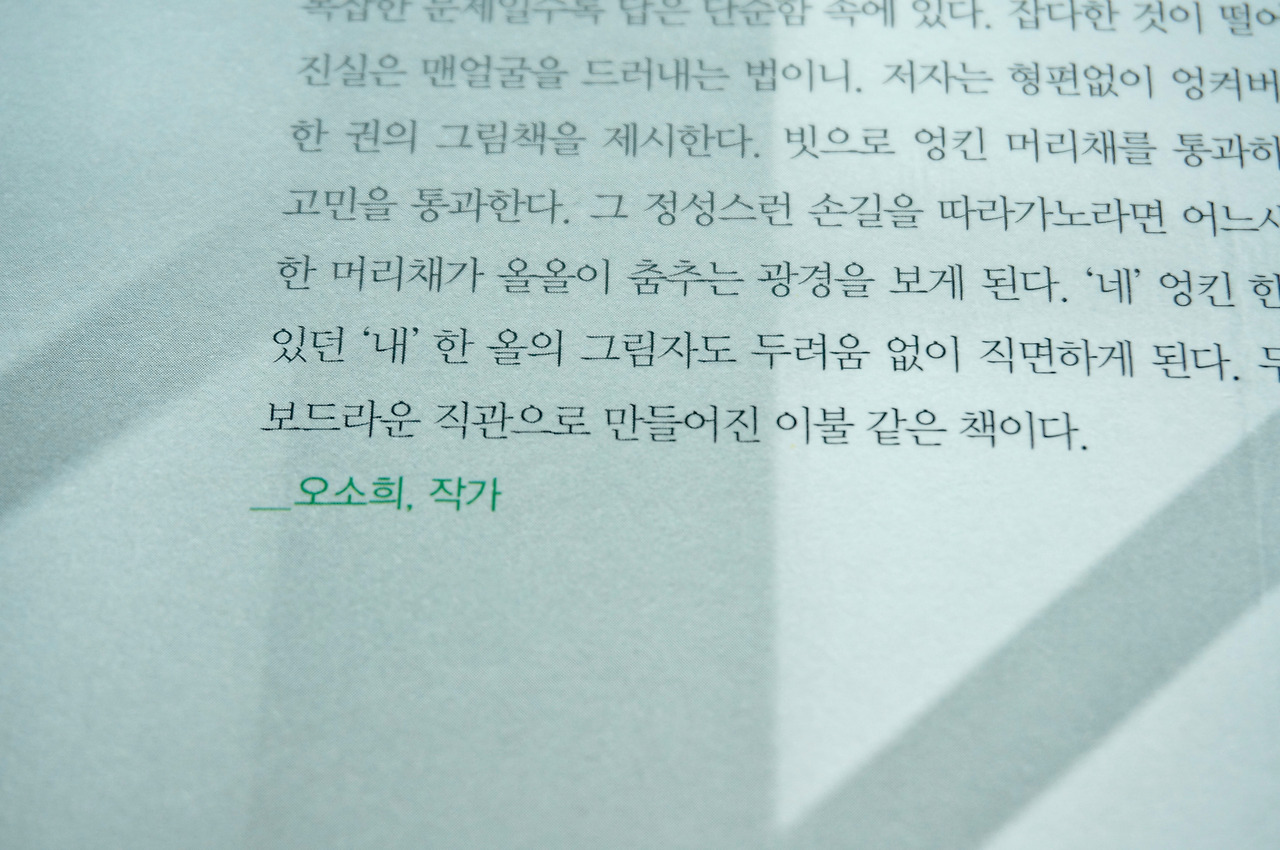 복잡한 문제일수록 답은 단순함 속에 있다. 잡다한 것이
진실은 맨얼굴을 드러내는 법이니. 저자는 형편없이 엉켜버
한 권의 그림책을 제시한다. 빗으로 엉킨 머리채를 통과하
고민을 통과한다. 그 정성스런 손길을 따라가노라면 어느
한 머리채가 올올이 춤추는 광경을 보게 된다. ‘네’ 엉킨 한
있던 ‘내’ 한 올의 그림자도 두려움 없이 직면하게 된다.
보드라운 직관으로 만들어진 이불 같은 책이다.
__오소희, 작가